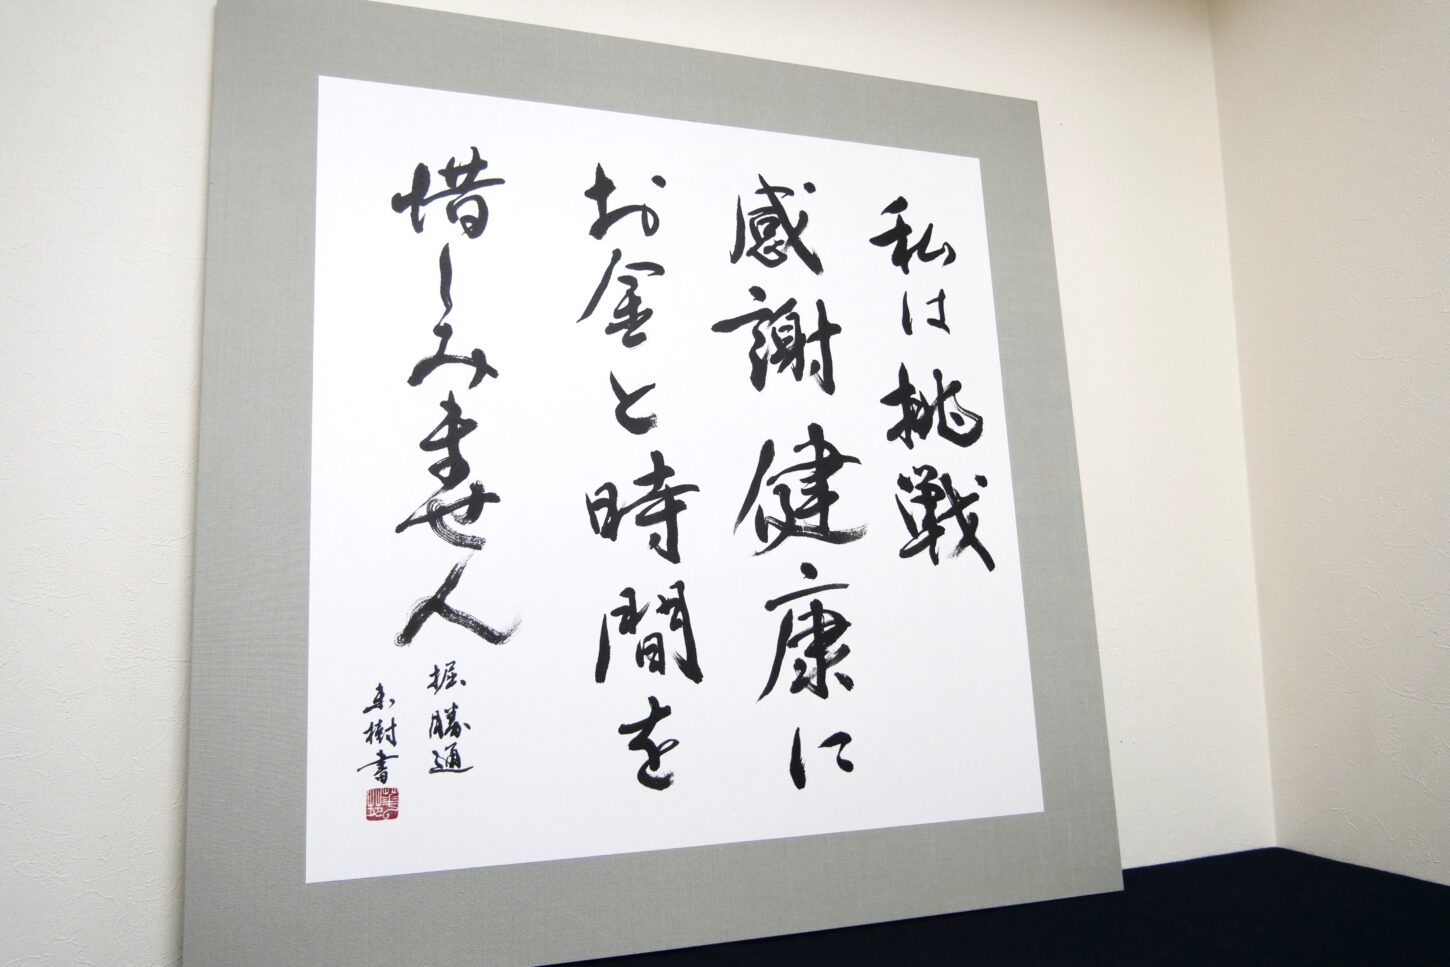 私は挑戦
感謝健康に
お金と時間を
惜しみません
堀勝通
樹書